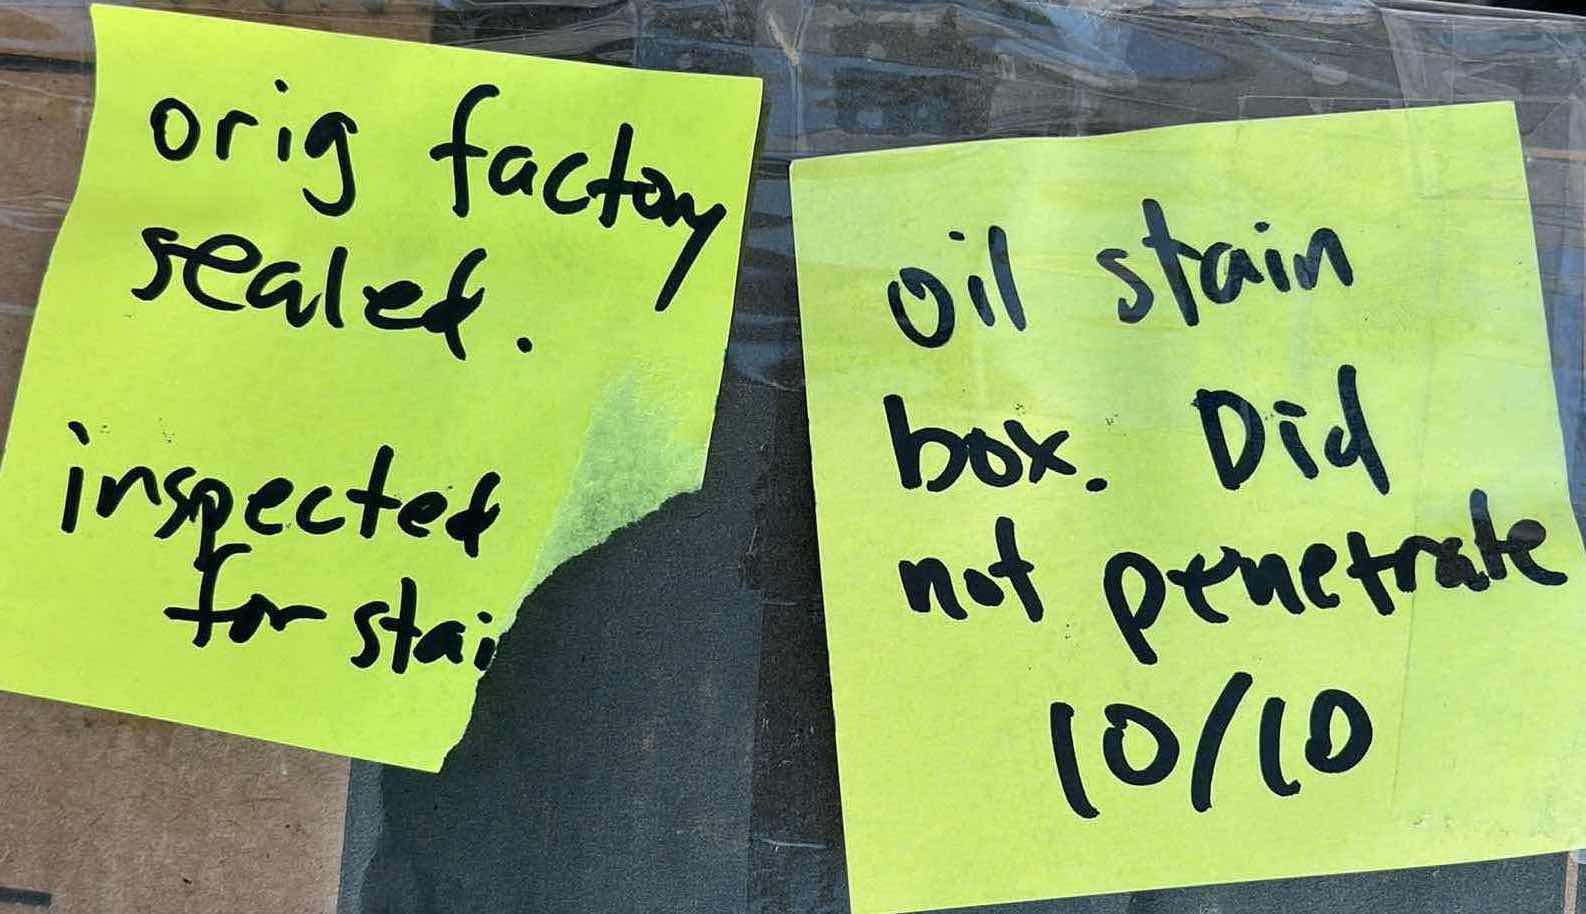 orig factory
sealed.
inspected
for stai
oil stain
box. Did
not penetrate
10/10